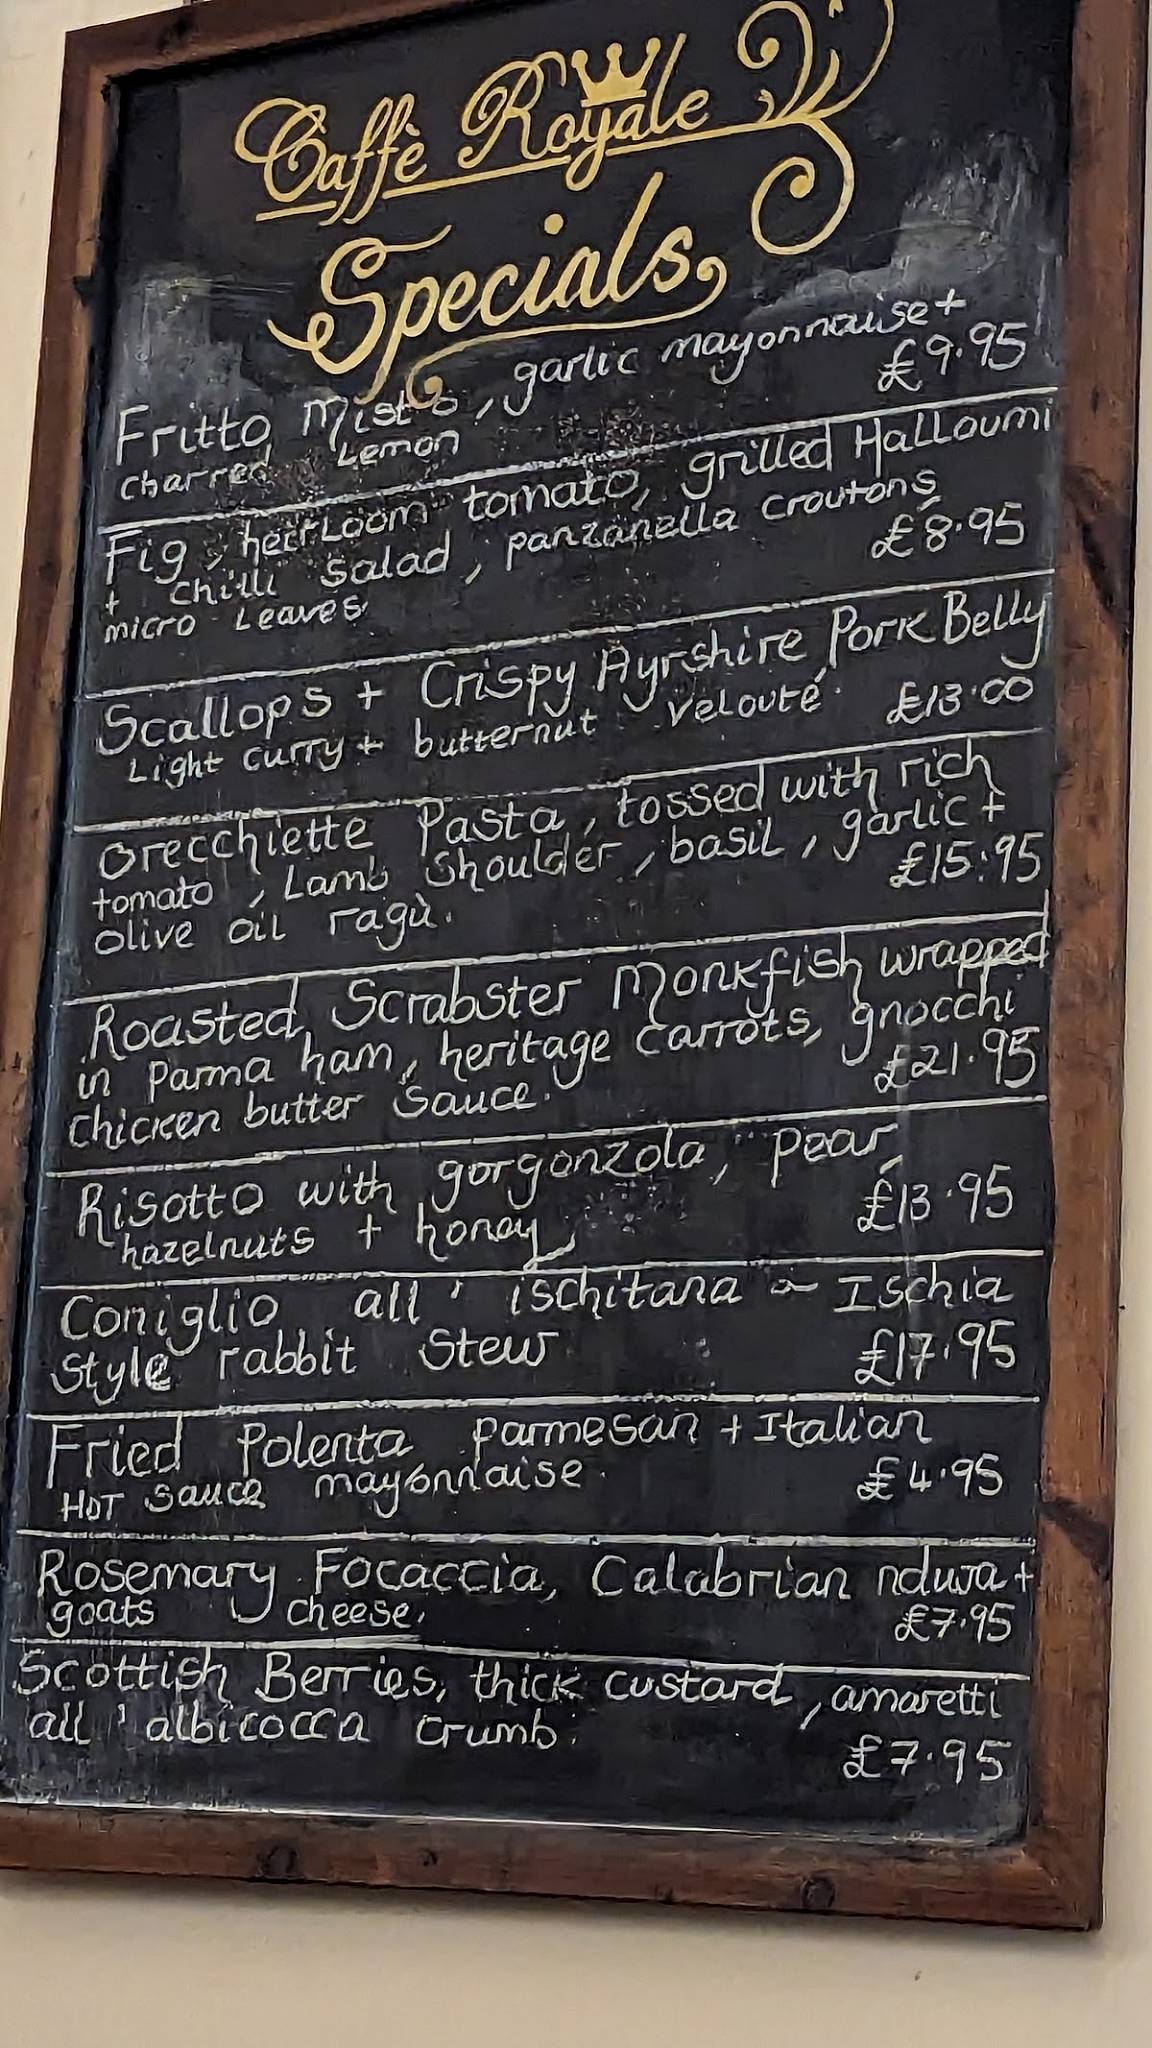 Caffè Royale
Specials
Fritto Misto, garlic mayonnaise +
charred Lemon £9.95
Fig, heirloom tomato, grilled Halloumi
+ chilli salad, panzanella croutons,
micro Leaves. £8.95
Scallops + Crispy Ayrshire Pork Belly,
Light curry + butternut velouté. £13.00
Orecchiette Pasta, tossed with rich
tomato, Lamb Shoulder, basil, garlic +
olive oil ragù. £15.95
Roasted Scrabster Monkfish wrapped
in Parma ham, heritage carrots, gnocchi
chicken butter sauce. £21.95
Risotto with gorgonzola, pear,
hazelnuts + honey £13.95
Coniglio all' ischitana ~ Ischia
style rabbit stew £17.95
Fried Polenta parmesan + Italian
HOT sauce mayonnaise. £4.95
Rosemary Focaccia, Calabrian nduja +
goats cheese. £7.95
Scottish Berries, thick custard, amaretti
all' albicocca crumb. £7.95